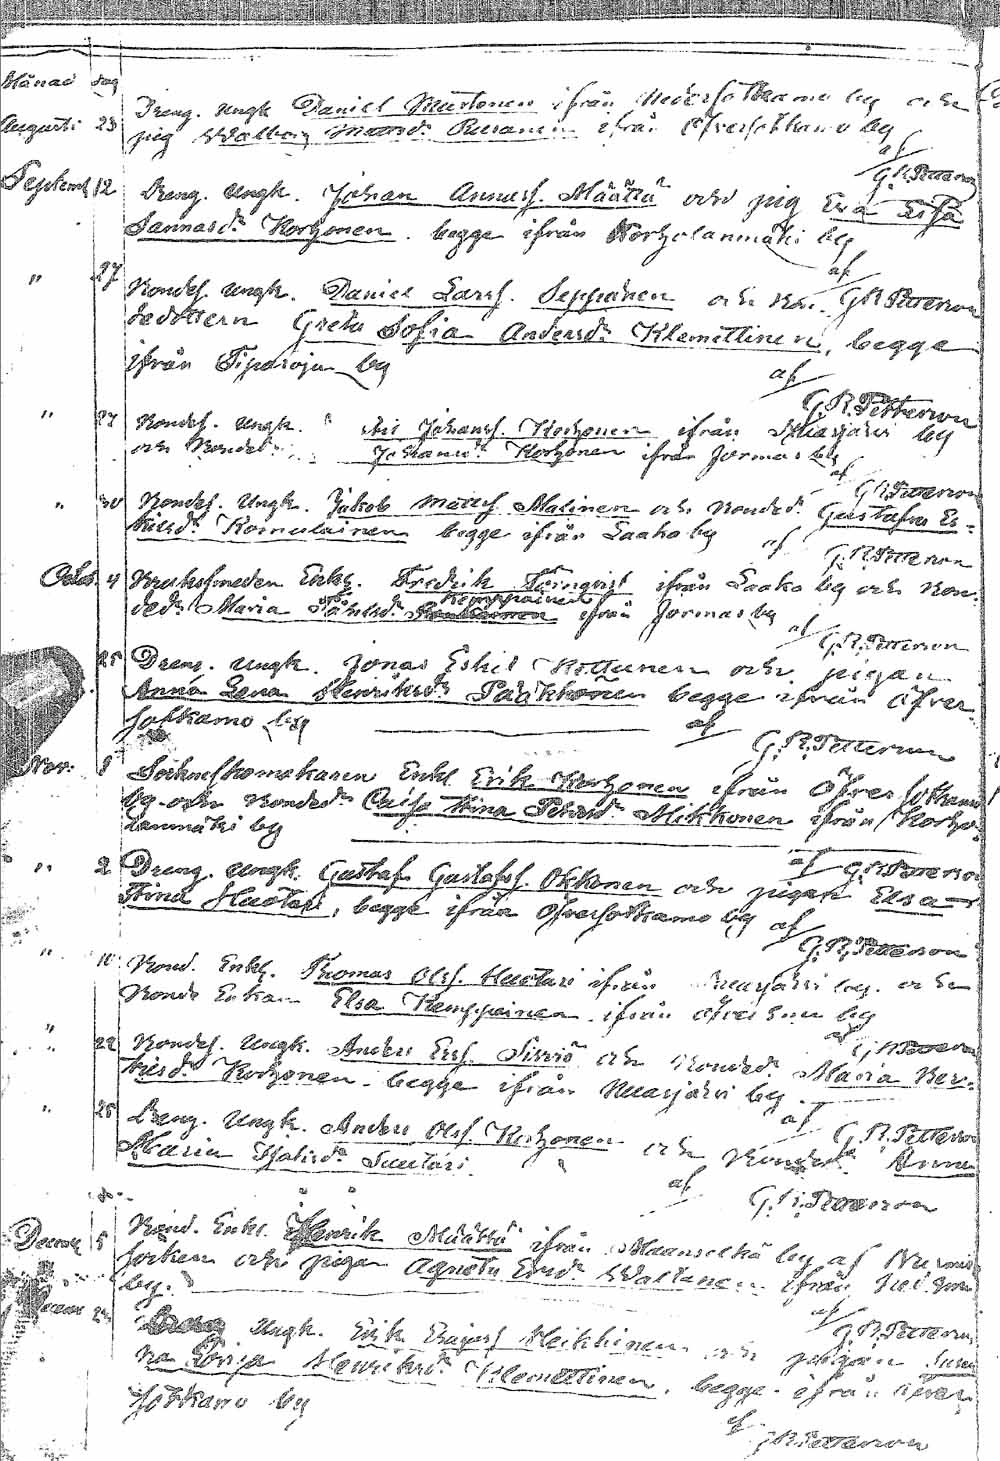 Månad dag
Augusti 23 Dreng. Ungk. Daniel Mustonen ifrån Nedersotkamo by och
pig Walborg Matsd:r Rusanen ifrån Öfversotkamo by
af
G. R. Petterson
Septemb 12 Dreng. Ungk. Johan Andersf. Määttä och pig Eva Lisa
Jannasd:r Korhonen. begge ifrån Korholanmäki by
af
" 27 Bondes. Ungk. Daniel Larsf. Seppänen och Bon- G R Petterson
dedottern Greta Sofia Andersd:r Klemettinen, begge
ifrån Tipasoja by
af
G. R. Petterson
" 27 Bondes. Ungk. Johansf. Korhonen ifrån by
och Bonded. Johansd:r Korhonen ifrån Jormas by
af
G R Petterson
" 30 Bondes. Ungk. Jakob Matsf Malinen och Bonded:r Gustafva Es-
kilsd:r Komulainen begge ifrån Laaka by af
G. R. Petterson
Octob. 4 Bruksmeden Enkl. Fredrik Törnqvist ifrån Laaka by och Bon-
ded:r Maria Påhlsd:r Kemppainen ifrån Jormas by
af
G. R. Petterson
25 Dreng. Ungk. Jonas Eskil Kottunen och pigan
Anna Lena Henriksd:r Pääkkönen begge ifrån Öfver-
sotkamo by af
G. R. Petterson
Nov: 1 Sockneskomakaren Enkl Erik Korhonen ifrån Öfversotkamo
by och Bonded:r Caisa Stina Petersd:r Mikkonen ifrån Korho-
lanmäki by
af G R Petterson
" 2 Dreng. Ungk. Gustaf Gustafsf. Okkonen och pigan Elsa
Stina Huotari, begge ifrån Öfversotkamo by af
G. R. Petterson
" 10 Bond. Enkl. Thomas Olsf. Huotari ifrån Nuasjärvi by. och
Bonde Enkan Elsa Kemppainen. ifrån by
af
G R Petterson
" 22 Bondes. Ungk. Anders Ersf. Sirviö och Bonded:r Maria Ber-
tilsd:r Korhonen. begge ifrån Nuasjärvi by.
af
G. R. Petterson
" 26 Dreng. Ungk. Anders Olsf. Korhonen och Bonded:r Anna
Maria Huotari.
af
G. R. Petterson
Decemb 5 Bond. Enkl. Henrik Määttä ifrån Maanselkä by af Nurmis
Socken och pigan Agneta Ersd:r Waltanen ifrån
by.
af
G. R. Petterson
Decemb Dreng Ungk. Erik Heikkinen och pigan Susan
na Lovisa Henriksd:r Klemettinen, begge. ifrån Öfver
Sotkamo by
af
G R Petterson